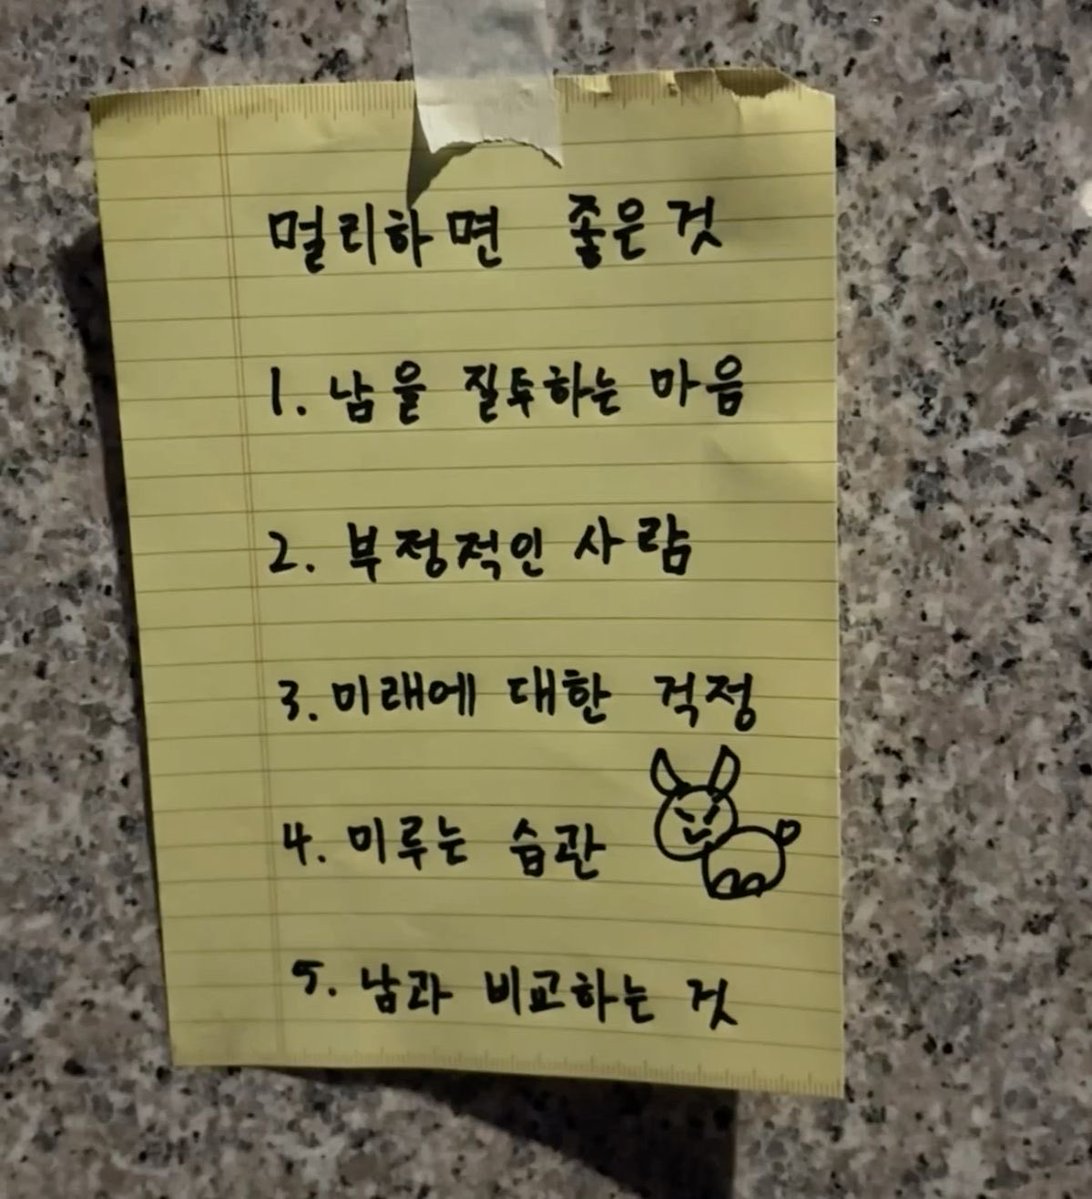 멀리하면 좋은것
1. 남을 질투하는 마음
2. 부정적인 사람
3. 미래에 대한 걱정
4. 미루는 습관
5. 남과 비교하는 것